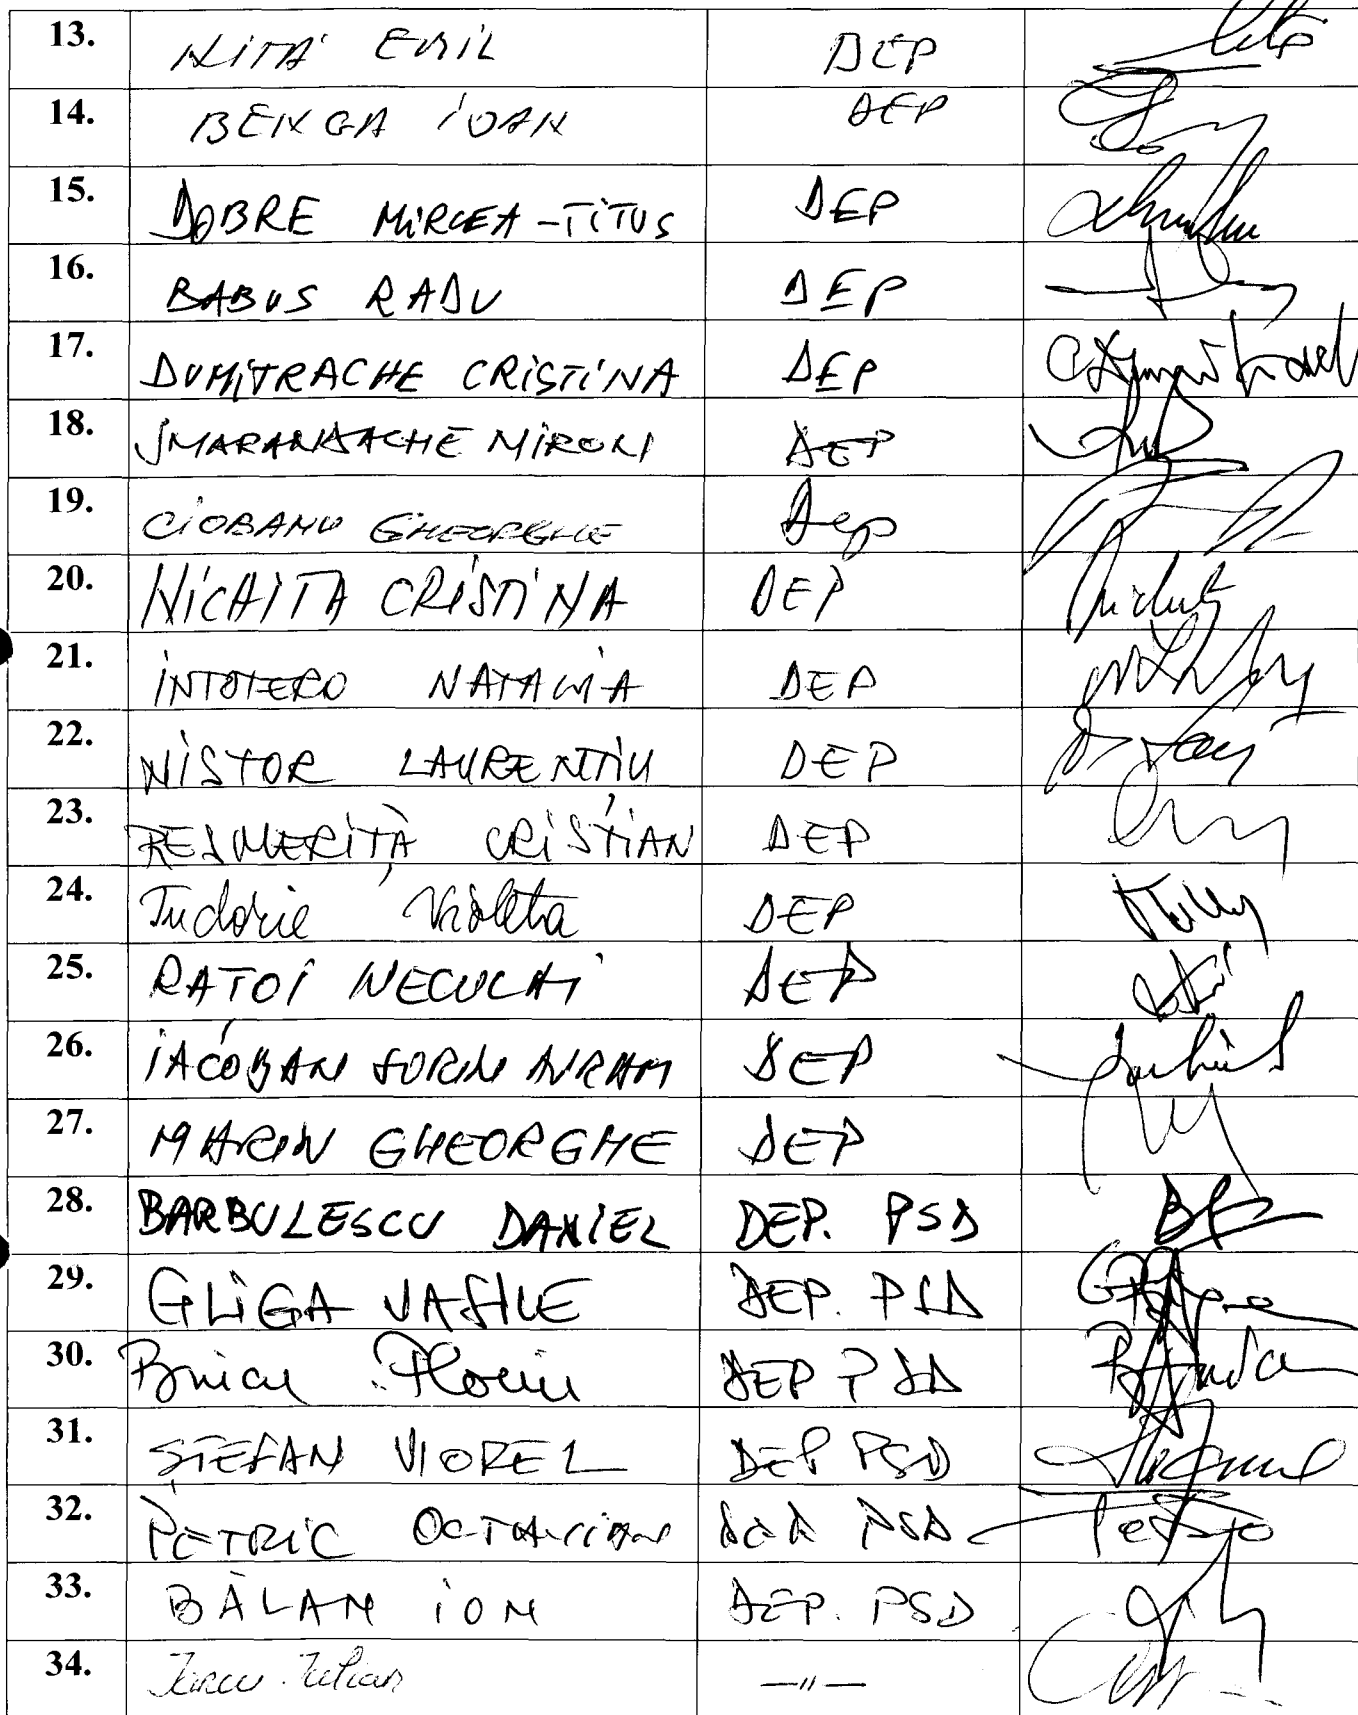 13. NIȚĂ EMIL DEP
14. BENGA IOAN DEP
15. DOBRE MIRCEA-TITUS DEP
16. BABUS RADU DEP
17. DUMITRACHE CRISTINA DEP
18. SMARANDACHE MIRON DEP
19. CIOBANU GHEORGHE Dep
20. NICHITA CRISTINA DEP
21. INTOTERO NATALIA DEP
22. NISTOR LAURENTIU DEP
23. RESMERIȚĂ CRISTIAN DEP
24. Tudorie Violeta DEP
25. RATOI NECULAI DEP
26. IACOBAN SORIN AVRAM DEP
27. MARIN GHEORGHE DEP
28. BARBULESCU DANIEL DEP. PSD
29. GLIGA VASILE DEP. PSD
30. Florin DEP PSD
31. ȘTEFAN VIOREL DEP PSD
32. PETRIC OCTAVIAN PSD
33. BĂLAN ION DEP. PSD
34. Iancu Iulian —"—